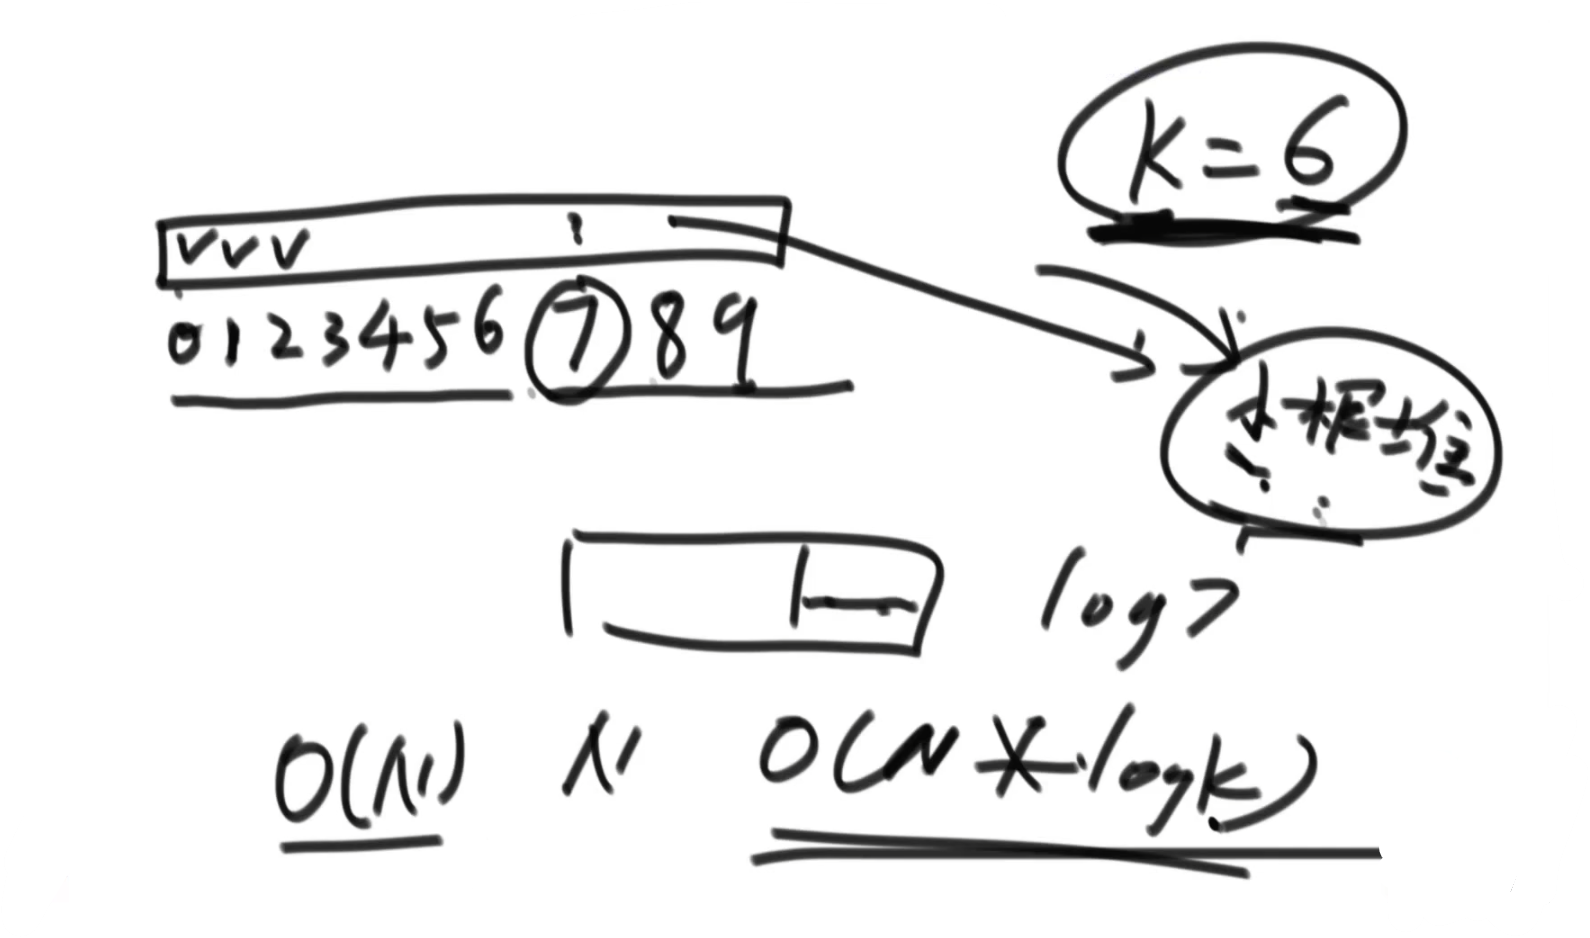 K=6
✓✓✓
0 1 2 3 4 5 6 7 8 9
小根堆
log7
O(N) N O(N*logk)